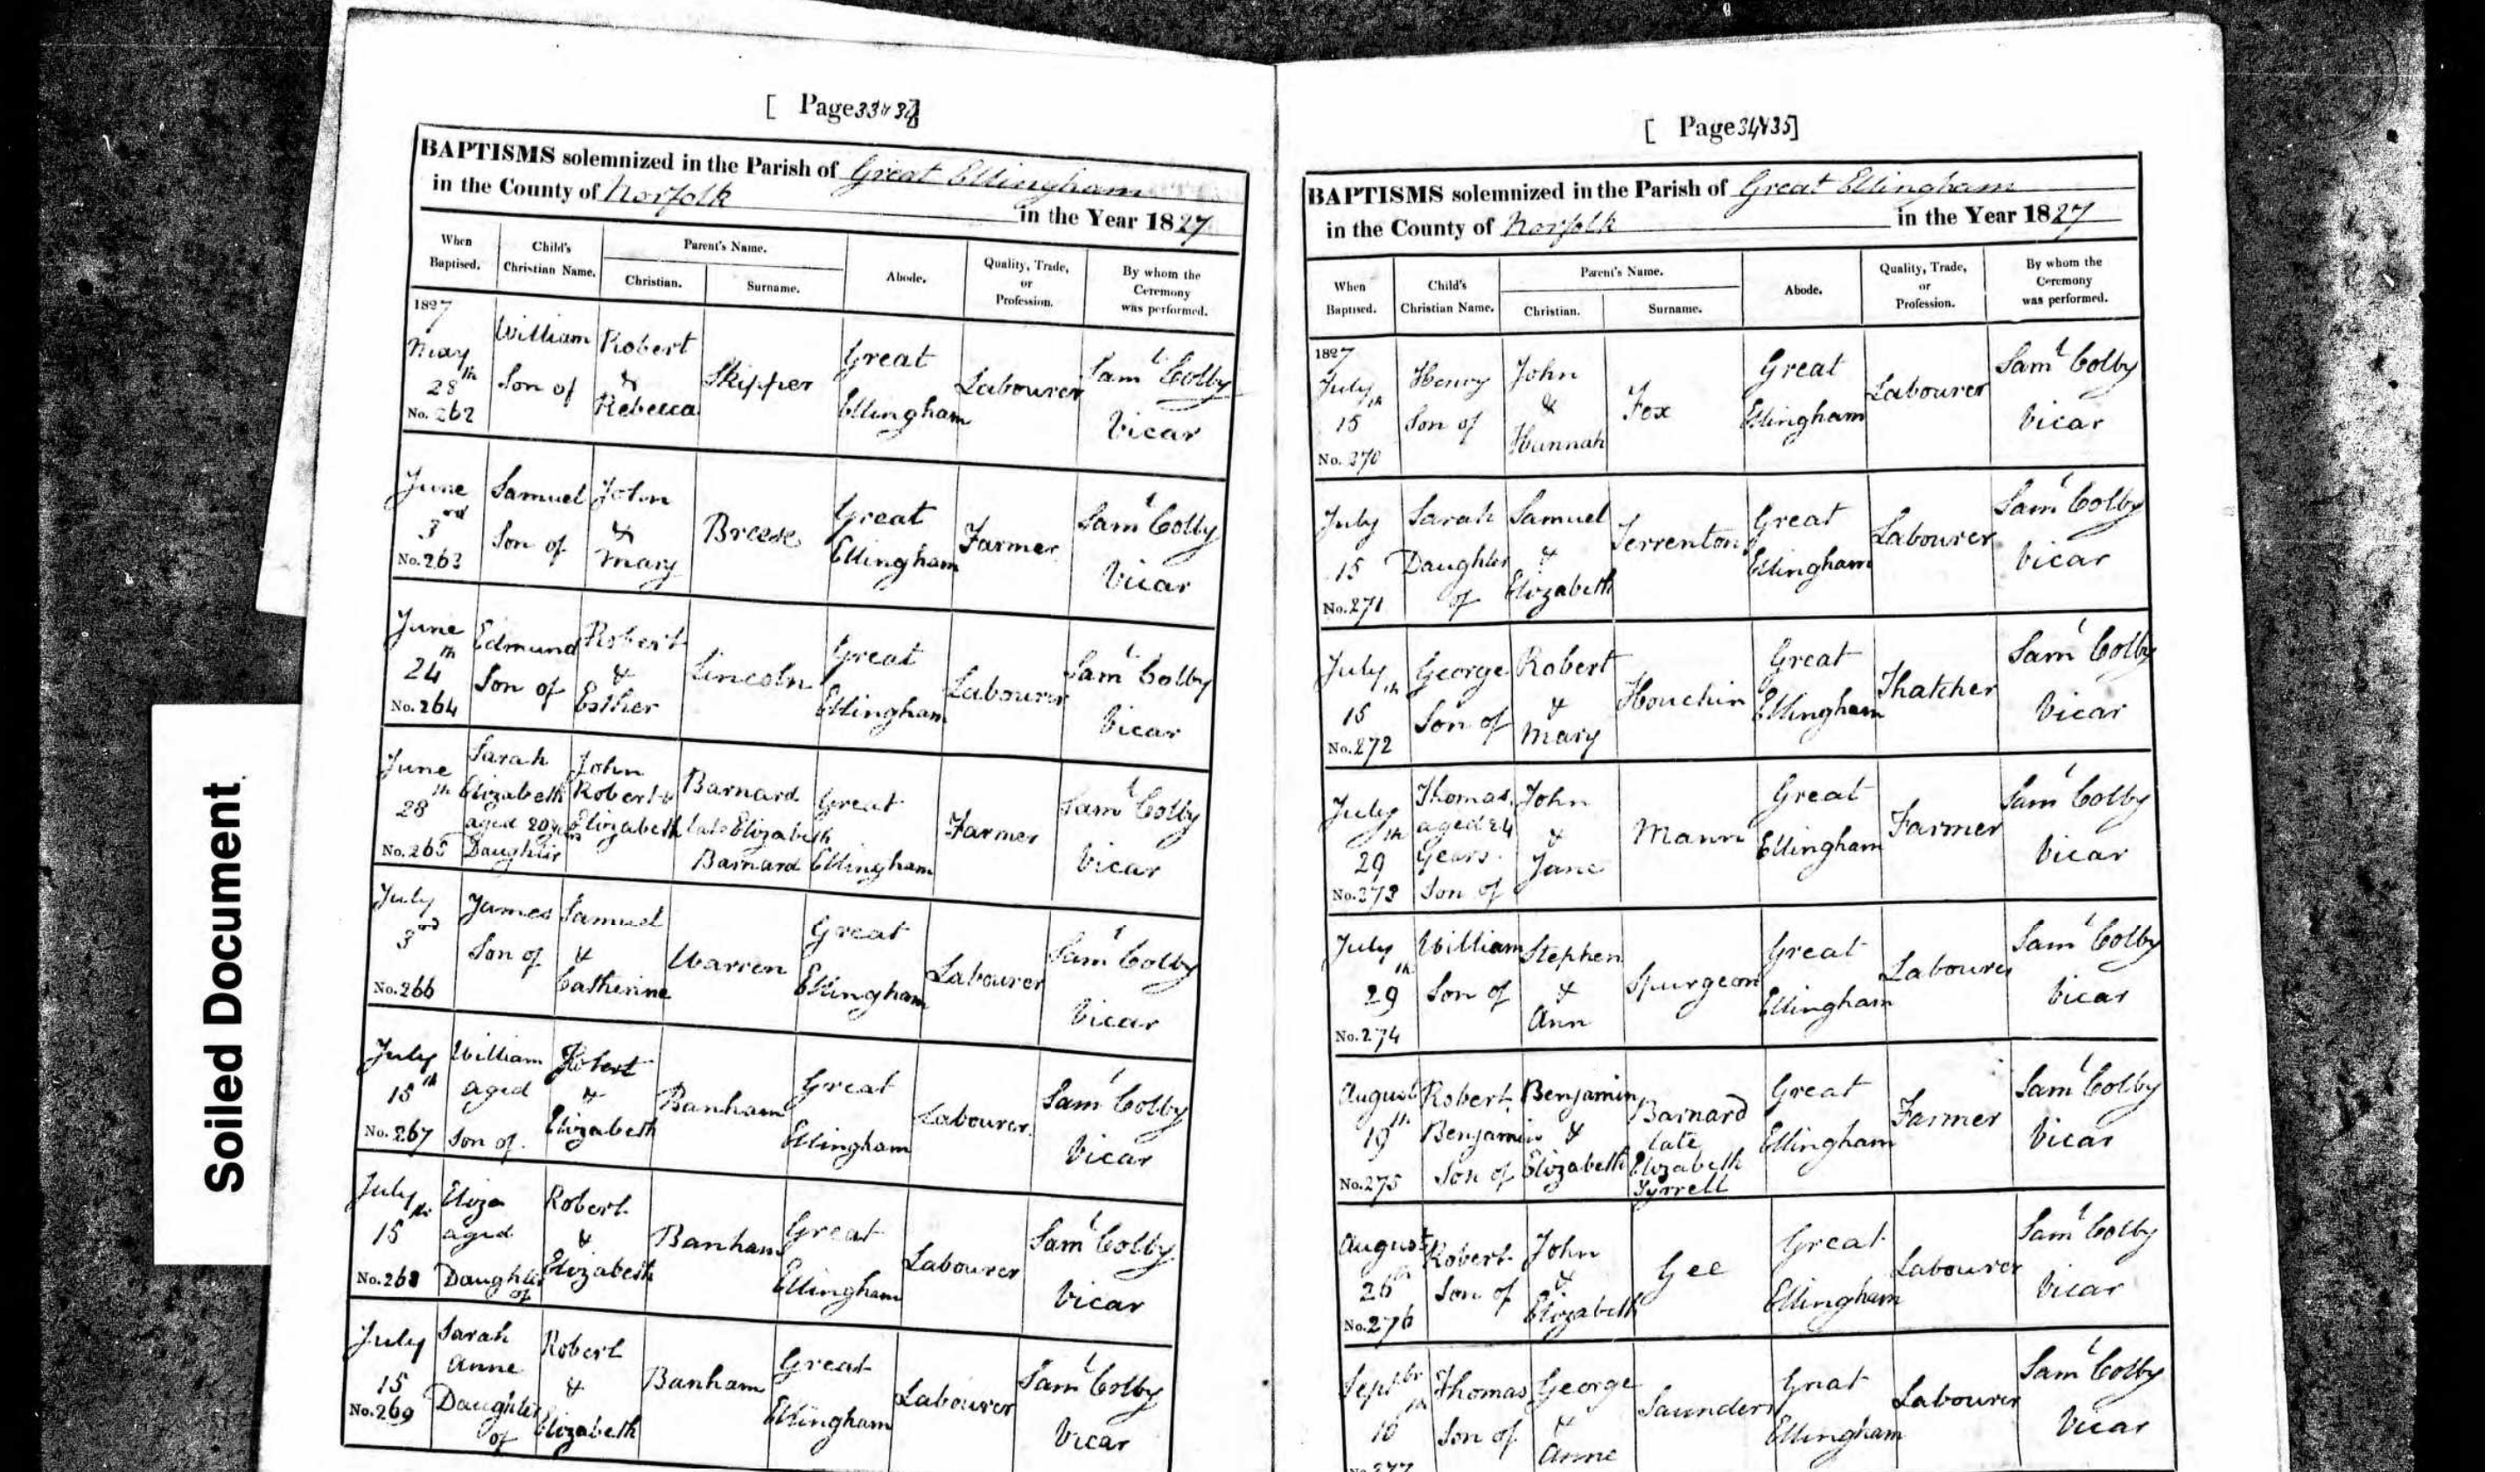 Soiled Document
[ Page 33 & 34 ]
BAPTISMS solemnized in the Parish of Great Ellingham
in the County of Norfolk in the Year 1827
When Baptised. Child's Christian Name. Parent's Name. Christian. Surname. Abode. Quality, Trade, or Profession. By whom the Ceremony was performed.
1827
May 28th No. 262 William Son of Robert & Rebecca Skipper Great Ellingham Labourer Saml Colby Vicar
June 3rd No. 263 Samuel Son of John & Mary Breese Great Ellingham Farmer Saml Colby Vicar
June 24th No. 264 Edmund Son of Robert & Esther Lincoln Great Ellingham Labourer Saml Colby Vicar
June 28th No. 265 Sarah Elizabeth aged 20 years Daughter John Robert & Elizabeth Barnard late Elizabeth Barnard Great Ellingham Farmer Saml Colby Vicar
July 3rd No. 266 James Son of Samuel & Catherine Warren Great Ellingham Labourer Saml Colby Vicar
July 15th No. 267 William aged Son of Robert & Elizabeth Banham Great Ellingham Labourer Saml Colby Vicar
July 15th No. 268 Eliza aged Daughter of Robert & Elizabeth Banham Great Ellingham Labourer Saml Colby Vicar
July 15 No. 269 Sarah Anne Daughter of Robert & Elizabeth Banham Great Ellingham Labourer Saml Colby Vicar
[ Page 34 & 35 ]
BAPTISMS solemnized in the Parish of Great Ellingham
in the County of Norfolk in the Year 1827
When Baptised. Child's Christian Name. Parent's Name. Christian. Surname. Abode. Quality, Trade, or Profession. By whom the Ceremony was performed.
1827
July 15th No. 270 Henry Son of John & Hannah Fox Great Ellingham Labourer Saml Colby Vicar
July 15 No. 271 Sarah Daughter of Samuel & Elizabeth Terrenton Great Ellingham Labourer Saml Colby Vicar
July 15th No. 272 George Son of Robert & Mary Houchin Great Ellingham Thatcher Saml Colby Vicar
July 29th No. 273 Thomas aged 24 Years Son of John & Jane Mann Great Ellingham Farmer Saml Colby Vicar
July 29th No. 274 William Son of Stephen & Ann Spurgeon Great Ellingham Labourer Saml Colby Vicar
August 19th No. 275 Robert Benjamin Son of Benjamin & Elizabeth Barnard late Elizabeth Tyrrell Great Ellingham Farmer Saml Colby Vicar
August 26th No. 276 Robert Son of John & Elizabeth Gee Great Ellingham Labourer Saml Colby Vicar
Septbr 16th No. 277 Thomas Son of George & Anne Saunders Great Ellingham Labourer Saml Colby Vicar